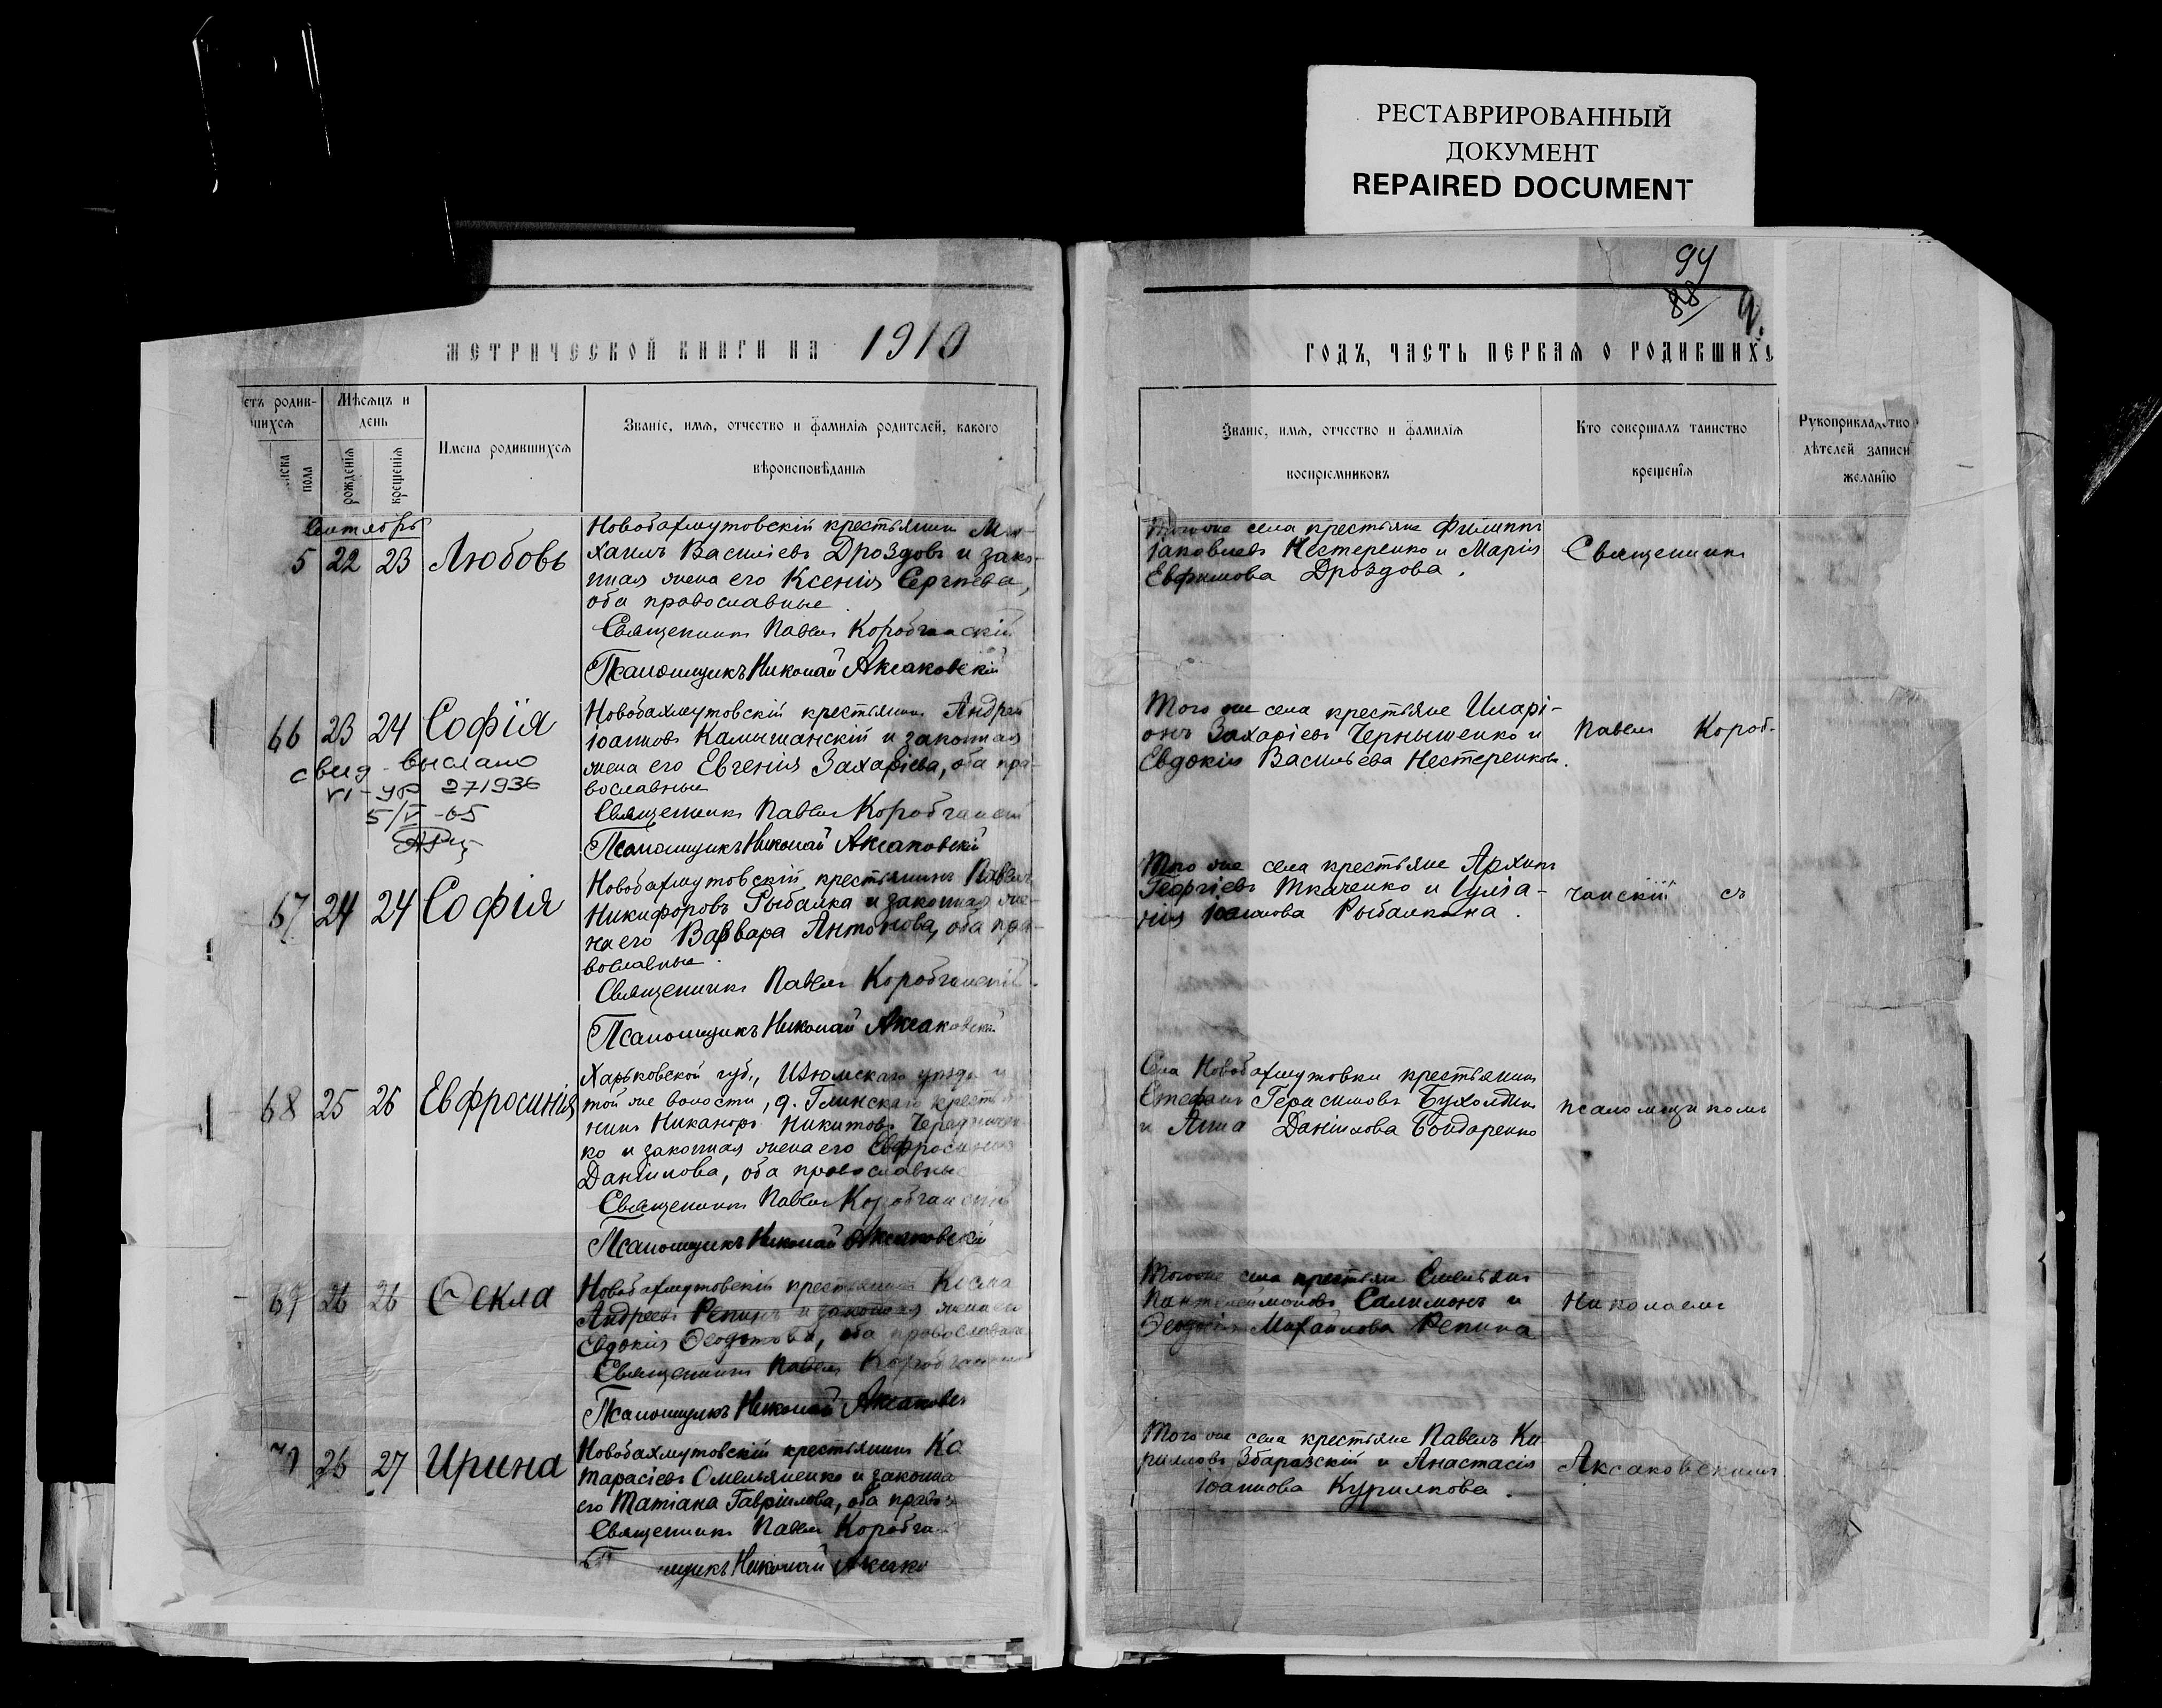 РЕСТАВРИРОВАННЫЙ
ДОКУМЕНТ
REPAIRED DOCUMENT
94
88
МЕТРИЧЕСКОЙ КНИГИ НА 1910
етъ родив-
шихся
Мѣсяцъ и
день
пола
рожденія
крещенія
Имена родившихся
Званіе, имя, отчество и фамилія родителей, какого
вѣроисповѣданія
Сентябрь
5 22 23 Любовь
Новобахмутовскій крестьянинъ Ми-
хаилъ Василіевъ Дроздовъ и зако-
нная жена его Ксенія Сергѣева,
оба православные.
Священникъ Павелъ Коробчанскій
Псаломщикъ Николай Аксаковскій
66 23 24 Софія
свид. выслано
VI-УР 271936
Новобахмутовскій крестьянинъ Андрей
Іоанновъ Камышанскій и законная
жена его Евгенія Захаріева, оба пра-
вославные
Священникъ Павелъ Коробчанскій
Псаломщикъ Николай Аксаковскій
67 24 24 Софія
Новобахмутовскій крестьянинъ Павелъ
Никифоровъ Рыбалка и законная же-
на его Варвара Антонова, оба пра-
вославные.
Священникъ Павелъ Коробчанскій.
Псаломщикъ Николай Аксаковскій
68 25 26 Евфросинія
Харьковской губ., Изюмскаго уѣзда и
той же волости, д. Глинскаго крестья-
нинъ Никаноръ Никитовъ
ко и законная жена его Евфросинія
Даніилова, оба православные
Священникъ Павелъ Коробчанскій
Псаломщикъ Николай Аксаковскій
69 26 26 Ѳекла
Новобахмутовскій крестьянинъ Косма
Андреевъ Репинъ и законная жена его
Евдокія Ѳеодотова, оба православные
Священникъ Павелъ Коробчанскій
Псаломщикъ Николай Аксаковс
70 26 27 Ирина
Новобахмутовскій крестьянинъ
Тарасіевъ Омельяненко и законна
его Татіана Гавріилова, оба право
Священникъ Павелъ Коробча
щикъ Николай Аксако
ГОДЪ, ЧАСТЬ ПЕРВАЯ О РОДИВШИХС
Званіе, имя, отчество и фамилія
воспріемниковъ
Кто совершалъ таинство
крещенія
Рукоприкладство
дѣтелей записи
желанію
Того же села крестьяне Филиппъ
Іаковлевъ Нестеренко и Марія
Евфимова Дроздова.
Священникъ
Того же села крестьяне Иларі-
онъ Захаріевъ Чернышенко и
Евдокія Васильева Нестеренкова.
Павелъ Короб-
Того же села крестьяне Архипъ
Георгіевъ Ткаченко и Іуліа-
нія Іоаннова Рыбалкина.
чанскій съ
Села Новобахмутовки крестьянинъ
Стефанъ Герасимовъ
и Анна Даніилова Бондаренко
псаломщикомъ
Того же села крестьяне Емельянъ
Пантелеймоновъ Салимонъ и
Ѳеодосія Михайлова Репина
Николаемъ
Того же села крестьяне Павелъ Ки-
рилловъ Збаразскій и Анастасія
Іоаннова Курилкова.
Аксаковскимъ.